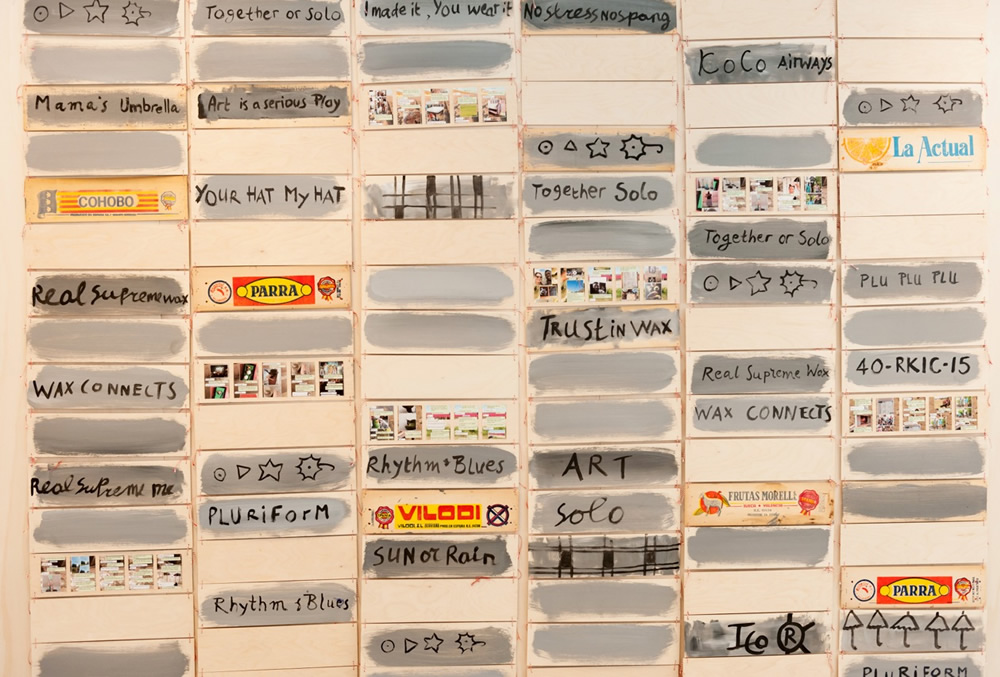 Together or Solo
I made it, You wear it
No stress No spang
KoCo AIRWAYS
Mama's Umbrella
Art is a serious Play
La Actual
COHOBO
YOUR HAT My HAT
Together Solo
Together or Solo
Real Supreme wax
PARRA
PLU PLU PLU
TRUST in WAX
WAX CONNECTS
Real Supreme Wax
40-RKIC-15
WAX CONNECTS
Real Supreme me
Rhythm & Blues
ART
PLURiForM
VILODI
Solo
FRUTAS MORELL
SUN or Rain
PARRA
Rhythm & Blues
ICO ®
PLURIFORM